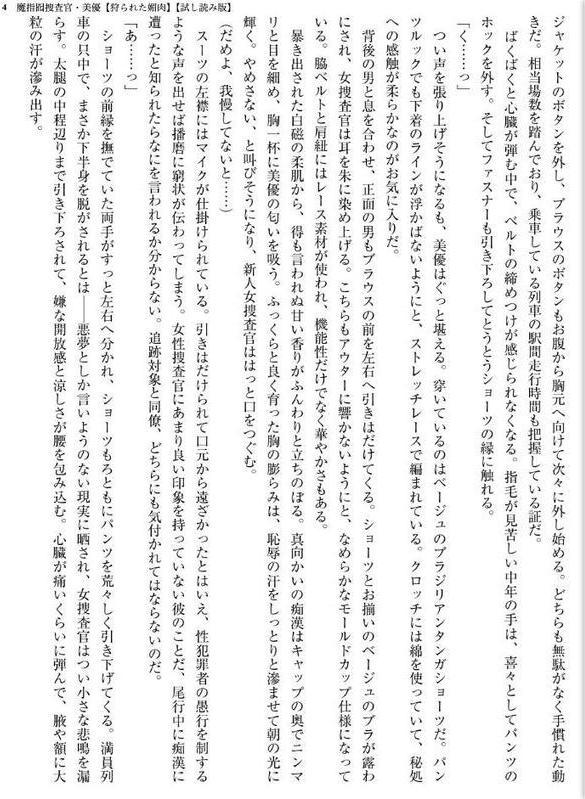 4　魔指囮捜査官・美優【狩られた媚肉】【試し読み版】
ジャケットのボタンを外し、ブラウスのボタンもお腹から胸元へ向けて次々に外し始める。どちらも無駄がなく手慣れた動
きだ。相当場数を踏んでおり、乗車している列車の駅間走行時間も把握している証だ。
ばくばくと心臓が弾む中で、ベルトの締めつけが感じられなくなる。指毛が見苦しい中年の手は、喜々としてパンツの
ホックを外す。そしてファスナーも引き下ろしてとうとうショーツの縁に触れる。
「く……っ」
つい声を張り上げそうになるも、美優はぐっと堪える。穿いているのはベージュのブラジリアンタンガショーツだ。パン
ツルックでも下着のラインが浮かばないようにと、ストレッチレースで編まれている。クロッチには綿を使っていて、秘処
への感触が柔らかなのがお気に入りだ。
背後の男と息を合わせ、正面の男もブラウスの前を左右へ引きはだけてくる。ショーツとお揃いのベージュのブラが露わ
にされ、女捜査官は耳を朱に染め上げる。こちらもアウターに響かないようにと、なめらかなモールドカップ仕様になって
いる。脇ベルトと肩紐にはレース素材が使われ、機能性だけでなく華やかさもある。
暴き出された白磁の柔肌から、得も言われぬ甘い香りがふんわりと立ちのぼる。真向かいの痴漢はキャップの奥でニンマ
リと目を細め、胸一杯に美優の匂いを吸う。ふっくらと良く育った胸の膨らみは、恥辱の汗をしっとりと滲ませて朝の光に
輝く。やめさない、と叫びそうになり、新人女捜査官ははっと口をつぐむ。
（だめよ、我慢してないと……）
スーツの左襟にはマイクが仕掛けられている。引きはだけられて口元から遠ざかったとはいえ、性犯罪者の愚行を制する
ような声を出せば播磨に窮状が伝わってしまう。女性捜査官にあまり良い印象を持っていない彼のことだ、尾行中に痴漢に
遭ったと知られたらなにを言われるか分からない。追跡対象と同僚、どちらにも気付かれてはならないのだ。
「あ……っ」
ショーツの前縁を撫でていた両手がすっと左右へ分かれ、ショーツもろともにパンツを荒々しく引き下げてくる。満員列
車の只中で、まさか下半身を脱がされるとは――悪夢としか言いようのない現実に晒され、女捜査官はつい小さな悲鳴を漏
らす。太腿の中程辺りまで引き下ろされて、嫌な開放感と涼しさが腰を包み込む。心臓が痛いくらいに弾んで、腋や額に大
粒の汗が滲み出す。